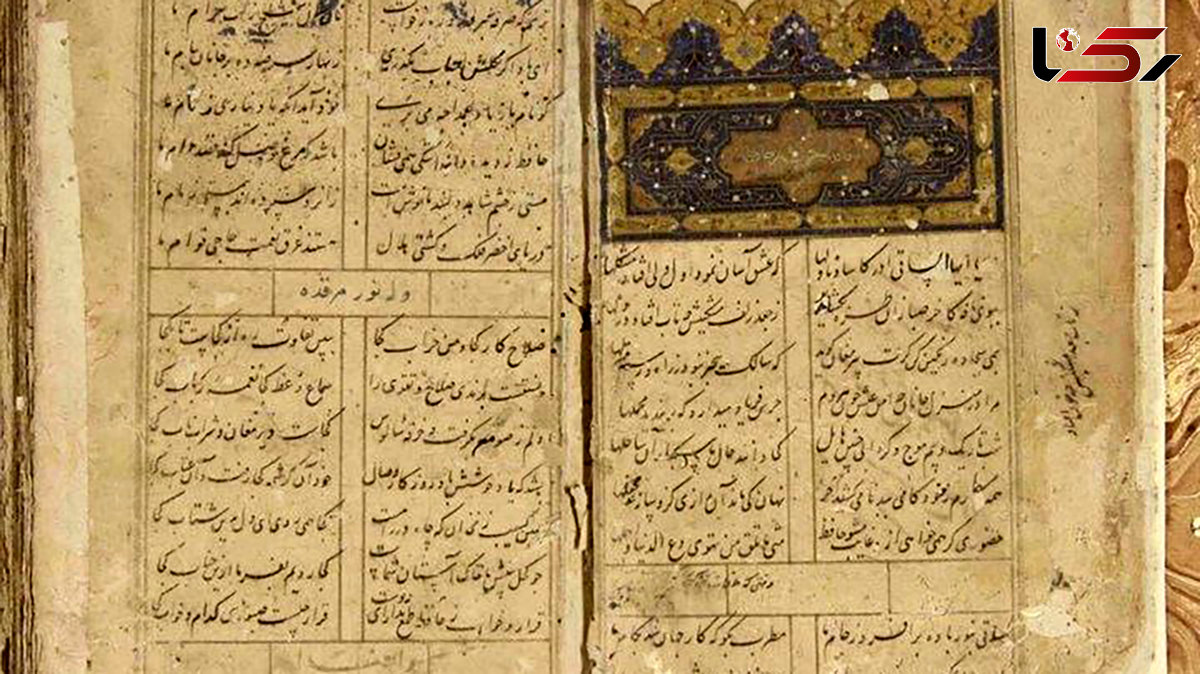 رکنا
الا یا ایها الساقی ادر کاسا و ناولها که عشق آسان نمود اول ولی افتاد مشکلها
ببوی نافه کاخر صبا زان طره بگشاید ز جعد زلف مشکینش چه تاب افتاد در دلها
بمی سجاده رنگین کن گرت پیر مغان گوید که سالک بیخبر نبود ز راه و رسم منزلها
مرا در منزل جانان چه امن عیش چون هر دم جرس فریاد میدارد که بربندید محملها
شب تاریک و بیم موج و گردابی چنین هایل کجا دانند حال ما سبکباران ساحلها
همه کارم ز خود کامی ببدنامی کشید آخر نهان کی ماند آن رازی کزو سازند محفلها
حضوری گر همی خواهی ازو غایب مشو حافظ متی ما تلق من تهوی دع الدنیا و
ساقی بنور باده برافروز جام ما مطرب بگو که کار جهان شد بکام ما
ای باد اگر بگلشن احباب بگذری زنهار عرضه ده بر جانان پیام ما
گو نام ما ز یاد بعمدا چه می بری خود آید آنکه یاد نیاری ز نام ما
حافظ ز دیده دانه اشکی همی فشان باشد که مرغ وصل کند قصد دام ما
مستی بچشم شاهد دلبند ما خوش است زانرو سپرده اند بمستی زمام ما
دریای اخضر فلک و کشتی هلال هستند غرق نعمت حاجی قوام ما
وله نور مرقده
صلاح کار کجا و من خراب کجا ببین تفاوت ره از کجاست تا بکجا
چه نسبت است برندی صلاح و تقوی را سماع وعظ کجا نغمه رباب کجا
دلم ز صومعه بگرفت و خرقه سالوس کجاست دیر مغان و شراب ناب کجا
بشد که یاد خوشش باد روزکار وصال خود آن کرشمه کجا رفت و آن عتاب کجا
مبین بسیب زنخدان که چاه در راهست کجا همی روی ای دل بدین شتاب کجا
چو کحل بینش ما خاک آستان شماست کجا رویم بفرما ازین جناب کجا
قرار و خواب ز حافظ طمع مدار ای دوست قرار چیست صبوری کدام و خواب کجا